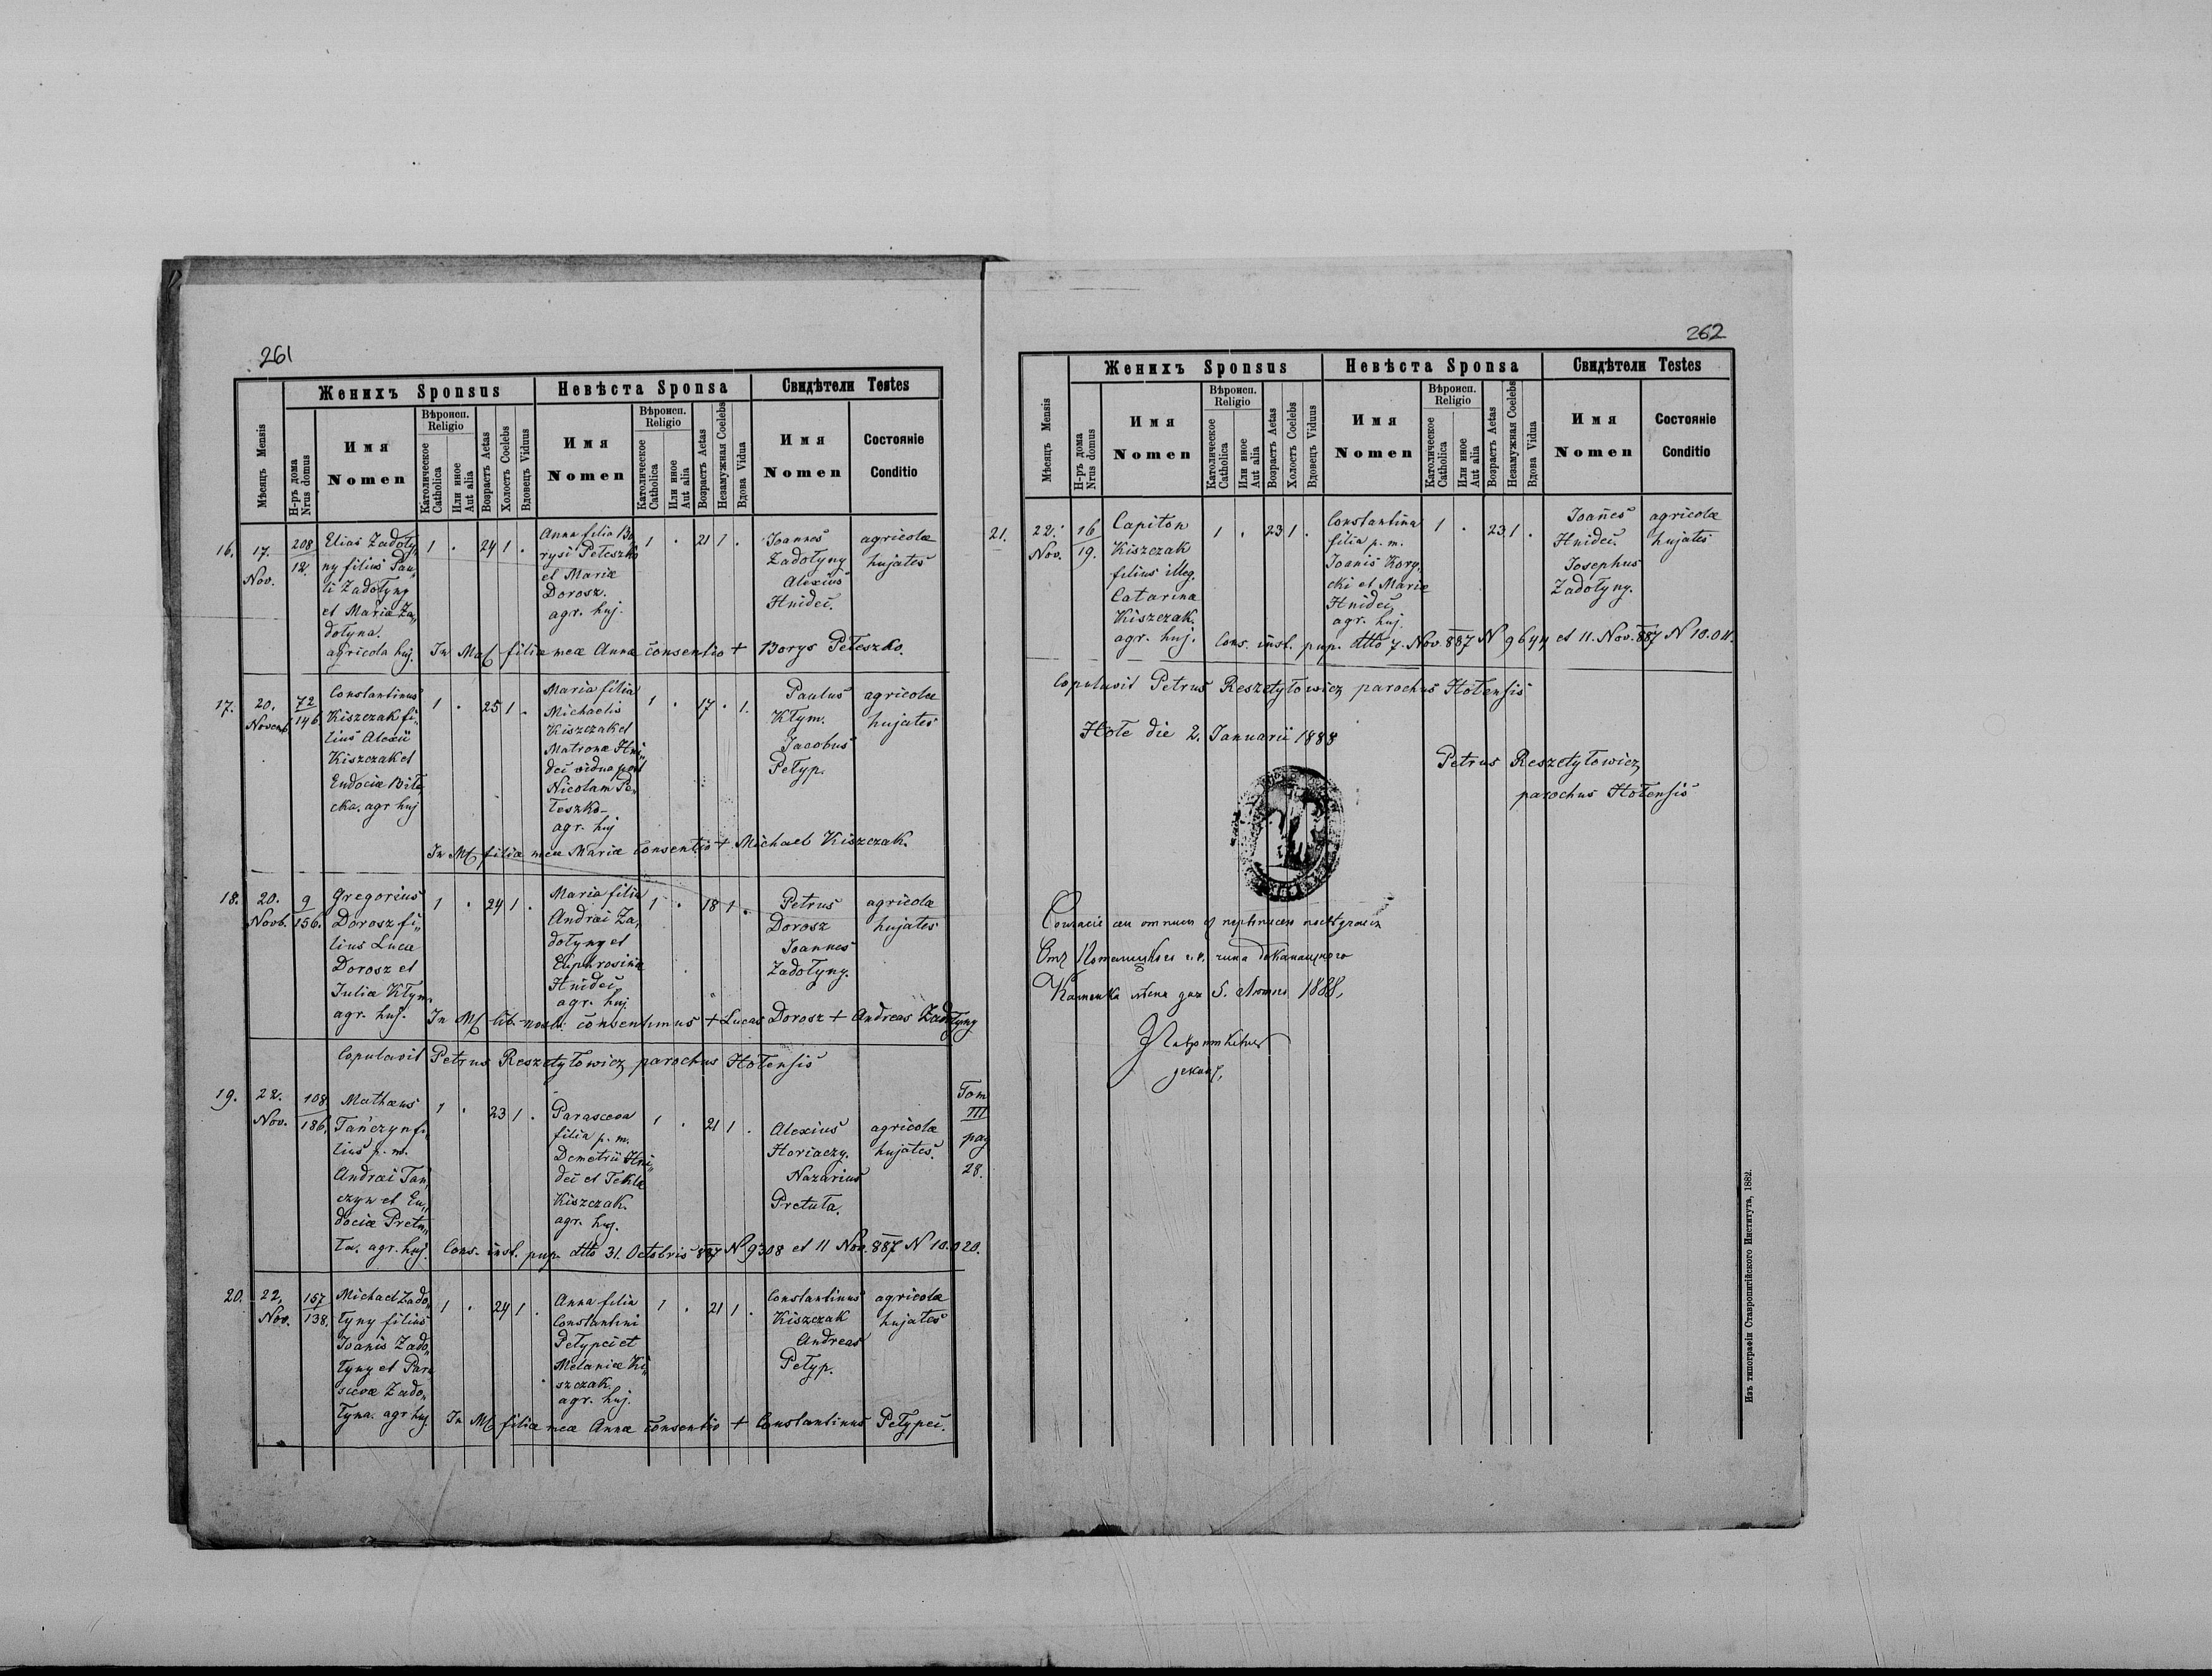 261
Женихъ Sponsus
Невѣста Sponsa
Свидѣтели Testes
Мѣсяцъ Mensis
Н-ръ дома
Nrus domus
Имя
Nomen
Вѣроисп.
Religio
Католическое
Catholica
Или иное
Aut alia
Возрастъ Aetas
Холостъ Coelebs
Вдовецъ Viduus
Имя
Nomen
Вѣроисп.
Religio
Католическое
Catholica
Или иное
Aut alia
Возрастъ Aetas
Незамужная Coelebs
Вдова Vidua
Имя
Nomen
Состояніе
Conditio
16.
17.
Nov.
208
12.
Elias Zadoły„
ny filius Pau„
li Zadołyny
et Mariæ Za„
dołyna.
agricola huj.
1 . 24 1 .
Anna filia Bo„
rysi Peleszko
et Mariæ
Dorosz.
agr. huj.
1 . 21 1 .
Joannes
Zadołyny
Alexius
Hnideć.
agricolæ
hujates
filiæ meæ Annæ consentio + Borys Pełeszko.
17.
20.
Novemb.
72
146
Constantinus
Kiszczak fi„
lius Alexii
Kiszczak et
Eudociæ Biła„
cka. agr huj
1 . 25 1 .
Maria filia
Michaelis
Kiszczak et
Matronæ Hni„
deć vidua post
Nicolam Pe„
łeszko
agr. huj
1 . 17 . 1.
Paulus
Kłym.
Jacobus
Pełyp.
agricolæ
hujates
filiæ meæ Mariæ consentio + Michael Kiszczak.
18.
20.
Novb.
9
156.
Gregorius
Dorosz fi„
lius Lucæ
Dorosz et
Juliæ Kłym.
agr. huj.
1 . 24 1 .
Maria filia
Andræi Za„
dołyny et
Euphrosinæ
Hnideć
agr. huj
1 . 18 1 .
Petrus
Dorosz
Joannes
Zadołyny.
agricolæ
hujates
lib. nostr. consentimus + Lucas Dorosz + Andreas Zadołyny
Copulavit Petrus Reszetyłowicz parochus Hołensis
19.
22.
Nov.
108
186.
Mathæus
Tańczyn fi„
lius p. m.
Andræi Tan„
czyn et Eu„
dociæ Pretu„
ła. agr. huj.
1 . 23 1 .
Parasceva
filia p. m.
Demetrii Hni„
deć et Teklæ
Kiszczak.
agr. huj.
1 . 21 1 .
Alexius
Horiaczy.
Nazarius
Pretuła.
agricolæ
hujates.
Tom
III
pag
28.
Cons. inst. pup. dtto 31. Octobris 887 N 9308 et 11 Nov. 887 N 10.020.
20.
22.
Nov.
157
138.
Michael Zado„
łyny filius
Joanis Zado„
łyny et Para
scevæ Zado„
łyna. agr huj.
1 . 24 1 .
Anna filia
Constantini
Pełypeć et
Melaniæ Ki„
szczak.
agr. huj.
1 . 21 1 .
Constantinus
Kiszczak
Andreas
Pełyp.
agricolæ
hujates
filiæ meæ Annæ consentio + Constantinus Pełypeć.
262
Женихъ Sponsus
Невѣста Sponsa
Свидѣтели Testes
Мѣсяцъ Mensis
Н-ръ дома
Nrus domus
Имя
Nomen
Вѣроисп.
Religio
Католическое
Catholica
Или иное
Aut alia
Возрастъ Aetas
Холостъ Coelebs
Вдовецъ Viduus
Имя
Nomen
Вѣроисп.
Religio
Католическое
Catholica
Или иное
Aut alia
Возрастъ Aetas
Незамужная Coelebs
Вдова Vidua
Имя
Nomen
Состояніе
Conditio
21.
22.
Nov.
16
19.
Capiton
Kiszczak
filius illeg.
Catarina
Kiszczak.
agr. huj.
1 . 23 1 .
Constantina
filia p. m.
Joanis Kory„
cki et Mariæ
Hnideć
agr. huj.
1 . 23 1 .
Joañes
Hnideć.
Josephus
Zadołyny.
agricolæ
hujates
Cons. inst. pup. dtto 7. Nov. 887 N 9644 et 11. Nov. 887 N 10.011.
Copulavit Petrus Reszetyłowicz parochus Hołensis
Hołe die 2. Januarii 1888
Petrus Reszetyłowicz
parochus Hołensis
Каменка дня 5. Лютня 1888,
Изъ типографіи Ставропигійского Института, 1882.